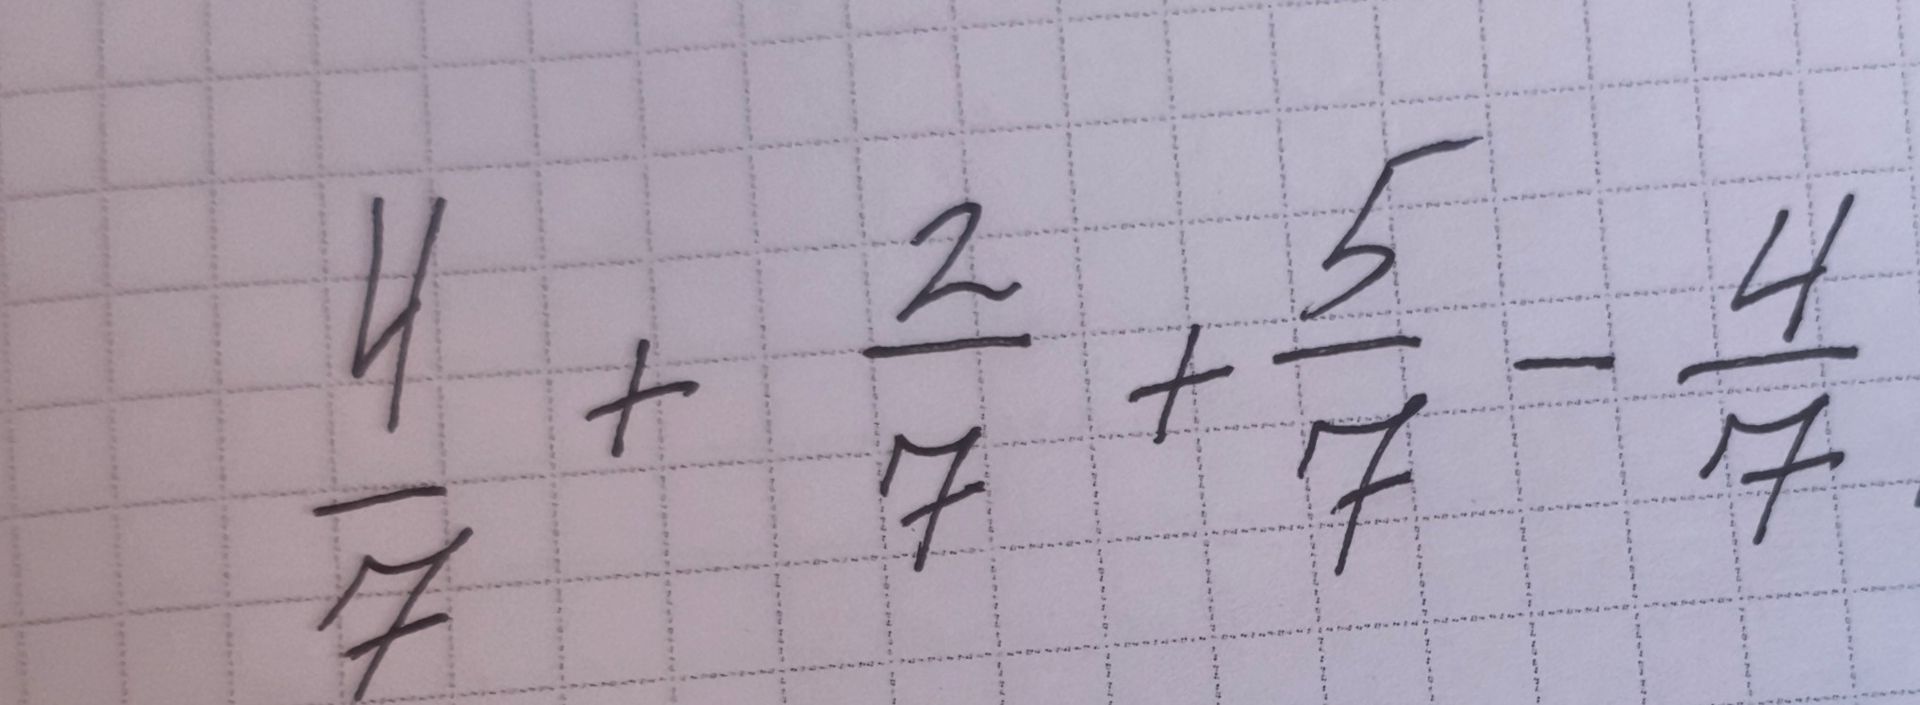 4/7 + 2/7 + 5/7 - 4/7